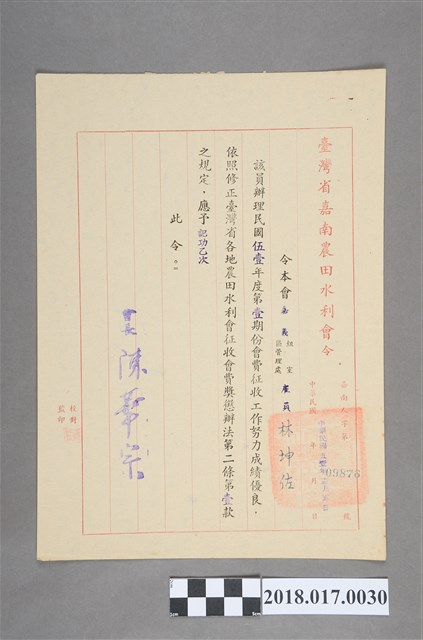 臺灣省嘉南農田水利會令
嘉南人字第 09876 號
中華民國 年 月 日
令本會嘉義 組室 區管理處 雇員 林坤佐
該員辦理民國伍壹年度第壹期份會費征收工作努力成績優良。
依照修正臺灣省各地農田水利會征收會費獎懲辦法第二條第壹款
之規定,應予記功乙次
此令。
會長
校對
監印
2018.017.0030